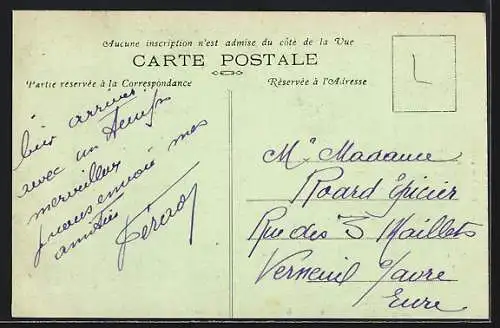 Aucune inscription n'est admise du côté de la Vue
CARTE POSTALE
Partie réservée à la Correspondance
Réservée à l'Adresse
bien arrivés
avec un temps
merveilleux
vous envoie mes
amitiés
Mr Madame
Roard Épicier
Rue des 3 Maillets
Verneuil s/avre
Eure